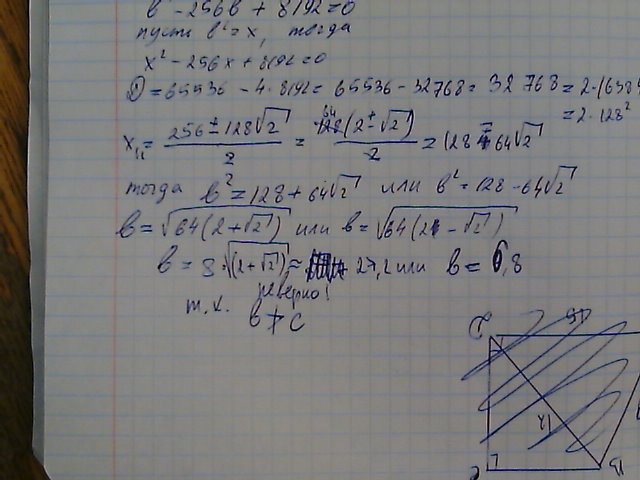 в² - 256в + 8192 = 0
пусть в² = x, тогда
x² - 256x + 8192 = 0
D = 65536 - 4·8192 = 65536 - 32768 = 32768 = 2·16384
= 2·128²
x₁,₂ = (256 ± 128√2)/2 = 64(2 ± √2)/2 = 128 ∓ 64√2
тогда в² = 128 + 64√2 или в² = 128 - 64√2
в = √64(2+√2) или в = √64(2 - √2)
в = 8·√(2+√2) ≈ 27,2 или в = 6,8
неверно!
т.к. в > c